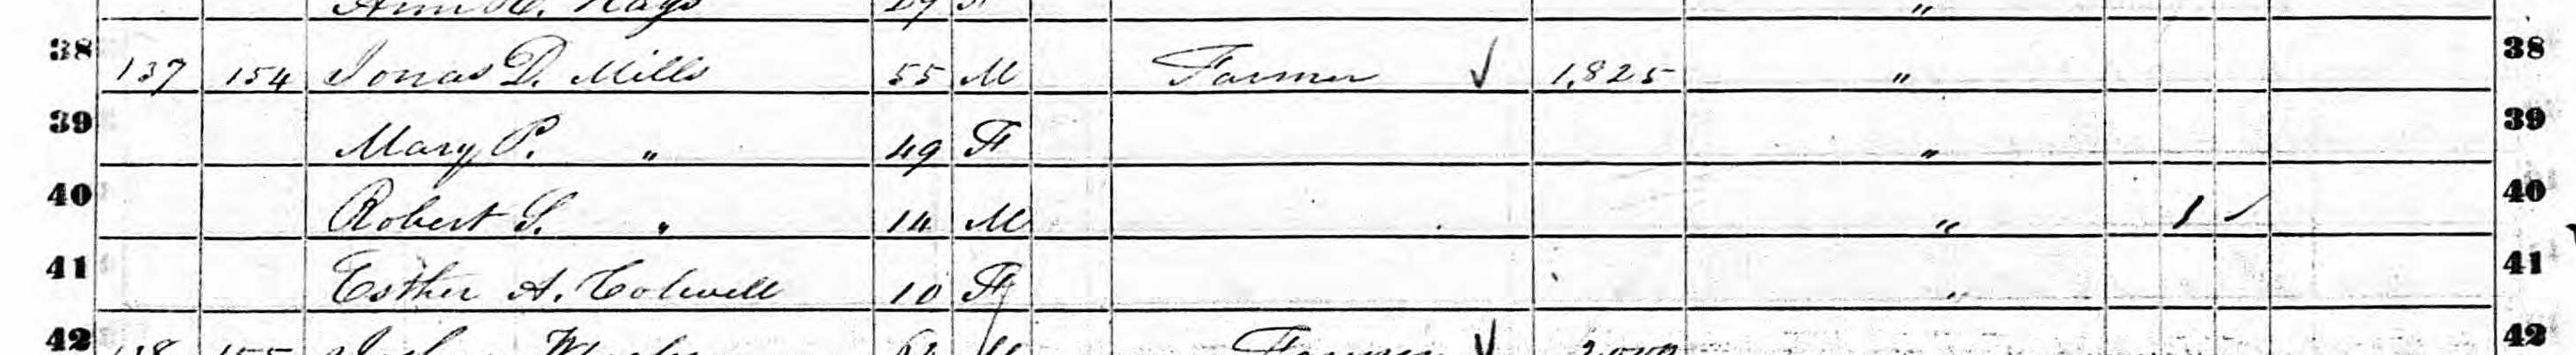 Hays 29 "
38 137 154 Jonas D. Mills 55 M Farmer ✓ 1,825 " 38
39 Mary P. " 49 F " 39
40 Robert S. " 14 M " 1 ✓ 40
41 Esther A. Colwell 10 F " 41
42 Farmer ✓ 42